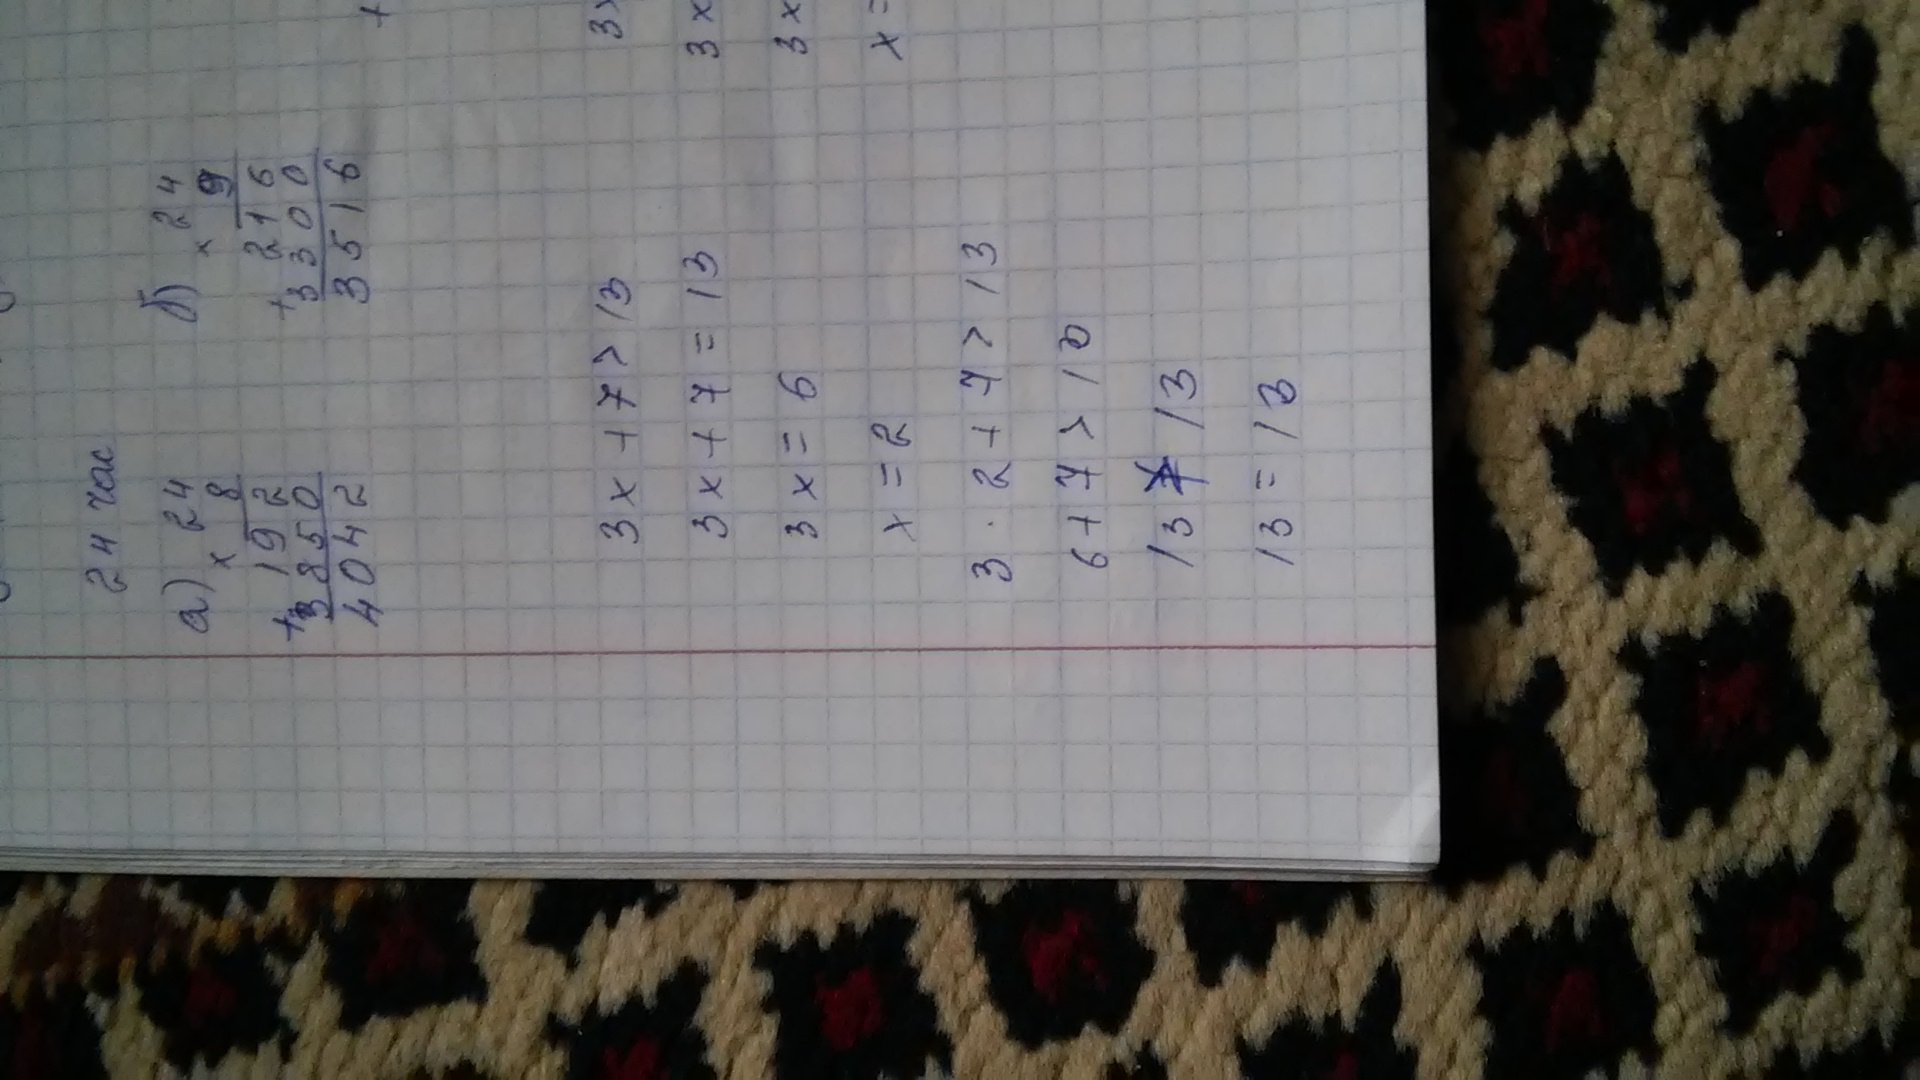 24 час
а) × 24
8
192
+ 3850
4042
б) × 24
9
216
+ 3300
3516
3x + 7 > 13
3x + 7 = 13
3x = 6
x = 2
3 · 2 + 7 > 13
6 + 7 > 13
13 ≯ 13
13 = 13
3x
3x
3x
x =
+